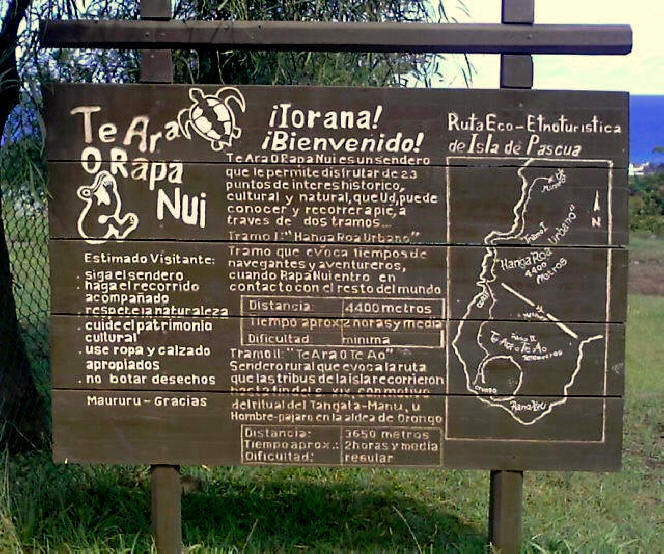 Te Ara
O Rapa
Nui
Estimado Visitante:
. siga el sendero
. haga el recorrido
acompañado
. respete la naturaleza
. cuide el patrimonio
cultural
. use ropa y calzado
apropiados
. no botar desechos
Maururu - Gracias
¡Iorana!
¡Bienvenido!
Te Ara O Rapa Nui es un sendero
que le permite disfrutar de 23
puntos de interes historico,
cultural y natural, que Ud, puede
conocer y recorrer a pie, a
traves de dos tramos...
Tramo I: "Hanga Roa Urbano"
Tramo que evoca tiempos de
navegantes y aventureros,
cuando Rapa Nui entro en
contacto con el resto del mundo
Distancia: 4400 metros
Tiempo aprox: 2 horas y media
Dificultad minima
Tramo II: "Te Ara O Te Ao"
Sendero rural que evoca la ruta
que las tribus de la isla recorrieron
hasta fin del s. XIX, con motivo
del ritual del Tangata-Manu, u
Hombre-pajaro en la aldea de Orongo
Distancia: 3650 metros
Tiempo aprox.: 2 horas y media
Dificultad: regular
Ruta Eco-Etnoturistica
de Isla de Pascua
N
Tramo I
Hanga Roa Urbano"
4400
Metros
Tramo II
Te Ara O Te Ao
Rano Kau